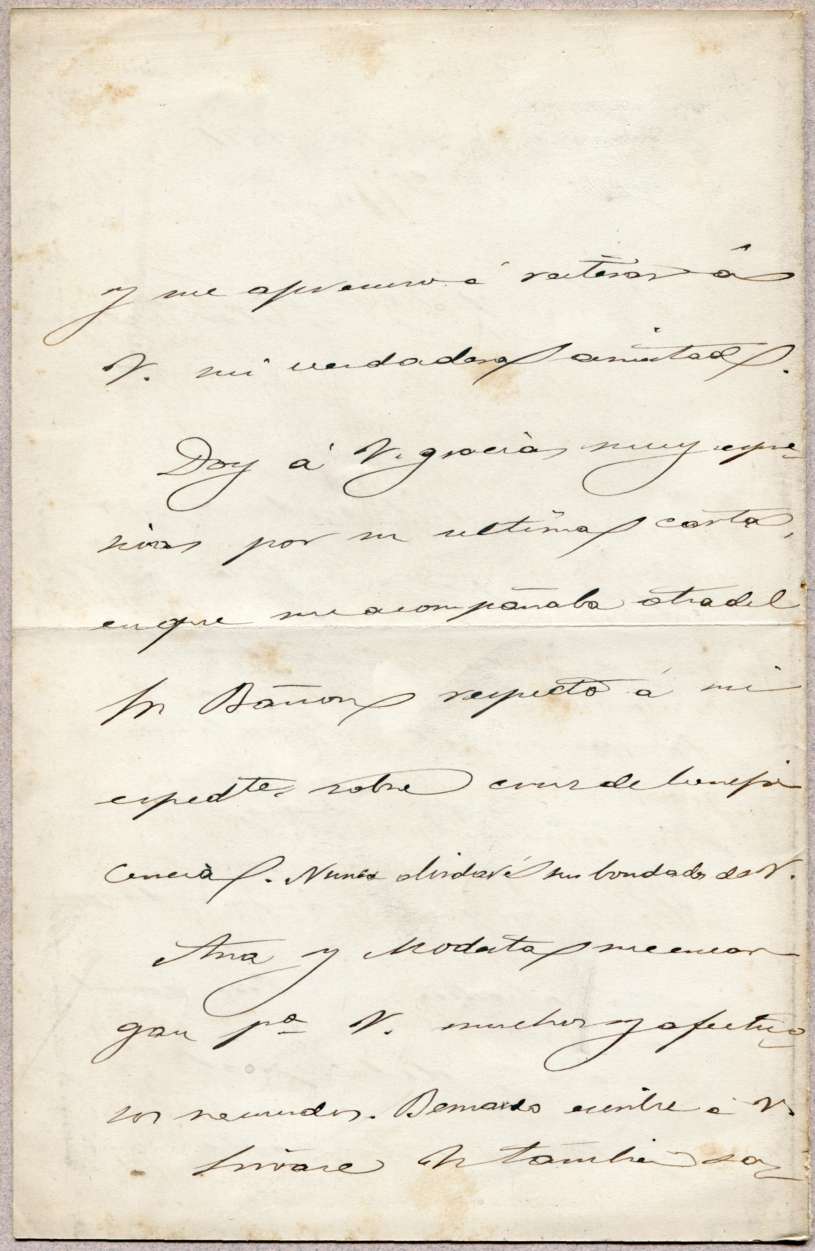 y me apresuro á reiterar á
V. mi verdadera amistad.
Doy á V. gracias muy expre-
sivas por su ultima carta,
en que me acompañaba otra del
Sr Bañon respecto á mi
expedte. sobre cruz de benefi
cencia. Nunca olvidaré sus bondades de V.
Ana y Modesta me encar
gan pª V. muchos y afectuo
sos recuerdos. Bernardo escribe á V.
Sirvase V tambien